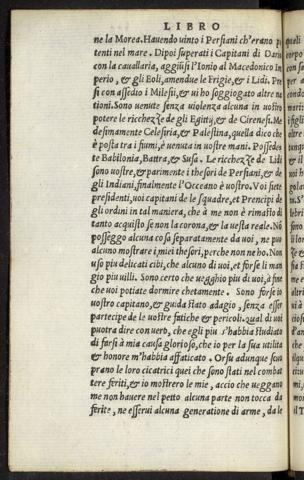 LIBRO
ne la Morea. Hauendo uinto i Persiani ch'erano po
tenti nel mare. Dipoi superati i Capitani di Dario
con la cauallaria, aggiũsi l'Ionio al Macedonico Im
perio, & gli Eoli, amendue le Frigie, & i Lidi. Pre
si con assedio i Milesii, & ui ho soggiogato altre na
tioni. Sono uenute senza uiolenza alcuna in uostro
potere le ricchezze de gli Egittij, & de Cirenesi. Me
desimamente Celesiria, & Palestina, quella dico che
è posta tra i fiumi, è uenuta in uostre mani. Possede
te Babilonia, Battra, & Susa. Le ricchezze de Lidi
sono uostre, & parimente i thesori de Persiani, & de
gli Indiani, finalmente l'Occeano è uostro. Voi siete
presidenti, uoi capitani de le squadre, et Prencipi de
gli ordini in tal maniera, che à me non è rimasto di
tanto acquisto se non la corona, & la uesta reale. Nõ
posseggo alcuna cosa separatamente da uoi, ne puo
alcuno mostrare i miei thesori, perche non ne ho. Non
uso piu delicati cibi, che alcuno di uoi, et forse li man
gio piu uili. Sono certo che uegghio piu di uoi, à fine
che uoi potiate dormire chetamente. Sono forse io
uostro capitano, & guida stato adagio, senza esser
partecipe de le uostre fatiche & pericoli. qual di uoi
puotra dire con uero, che egli piu s'habbia studiato
di farsi à mia causa glorioso, che io per la sua utilita
& honore m'habbia affaticato. Orsu adunque scuo
prano le loro cicatrici quei che sono stati nel combat
tere feriti, & io mostrero le mie, accio che ueggano
me non hauere nel petto alcuna parte non tocca da
ferite, ne esserui alcuna generatione di arme, da le